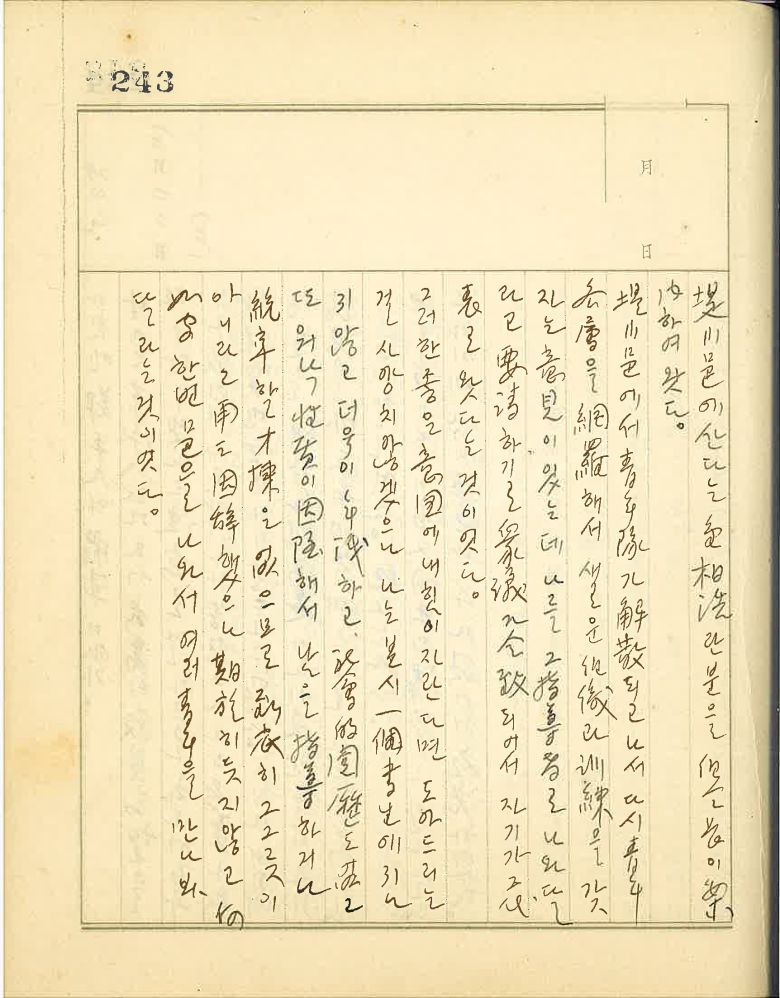 243
月 日
堤川邑에 산다는 相浩란 분을 但馬이
內하여 왓다。
堤川邑에서 靑年隊가 解散되고 나서 다시 靑年
各層을 網羅해서 새로운 組織과 訓練을 갖
자는 意見이 있는데 나를 그 指導者로 나와달
라고 要請하기로 衆議가 合致되여서 자기가 代
表로 왓다는 것이엿다。
그러한 좋은 意図에 내 힘이 자란다면 도아드리는
걸 사양치 않겟으나 나는 본시 一個 書生에 지나
지 않고 더욱이 年浅하고, 社会的 閱歷도 없고
또 워낙 性質이 因陋해서 남을 指導하거나
統率할 才操을 없으므로 到底히 그 그릇이
아니라고 再三 固辞했으나 期於히 듯지 않고
如何 한번 邑으로 나와서 여러 靑年을 만나 봐
달라는 것이엿다。